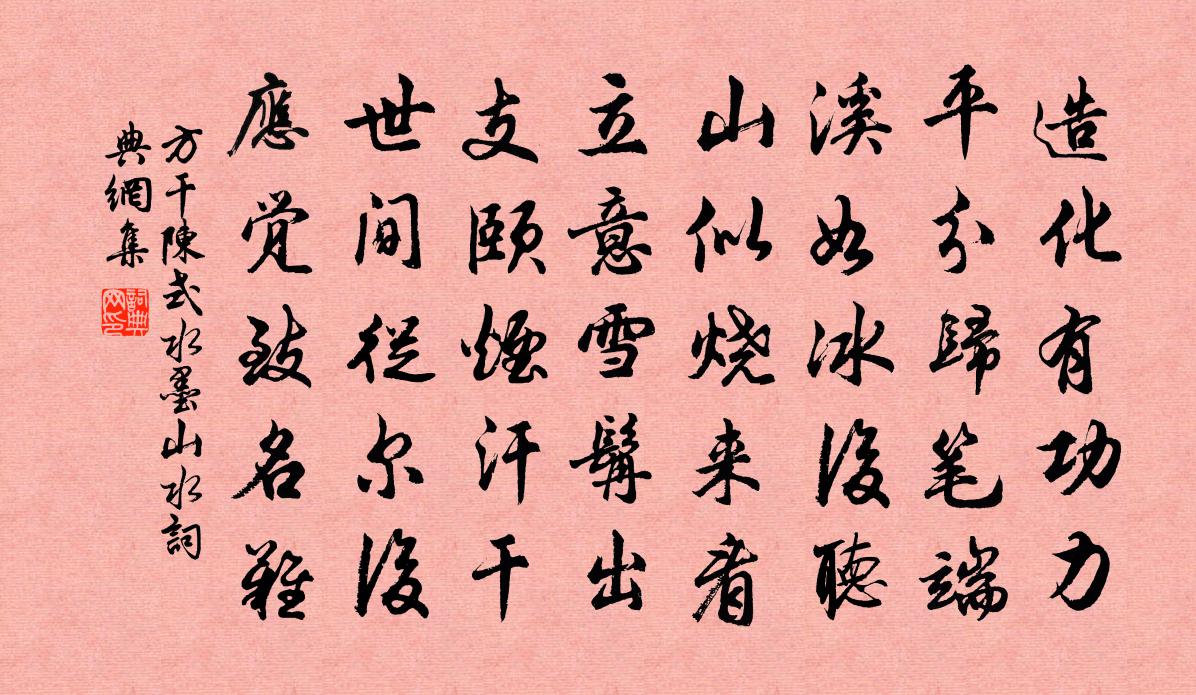 造化有功力
平分歸笔端
溪如冰後聽
山似烧来看
立意雪髯出
支颐煙汗干
世间從尔後
應觉致名難
方干陳式水墨山水詞
典網集
詞典
网印